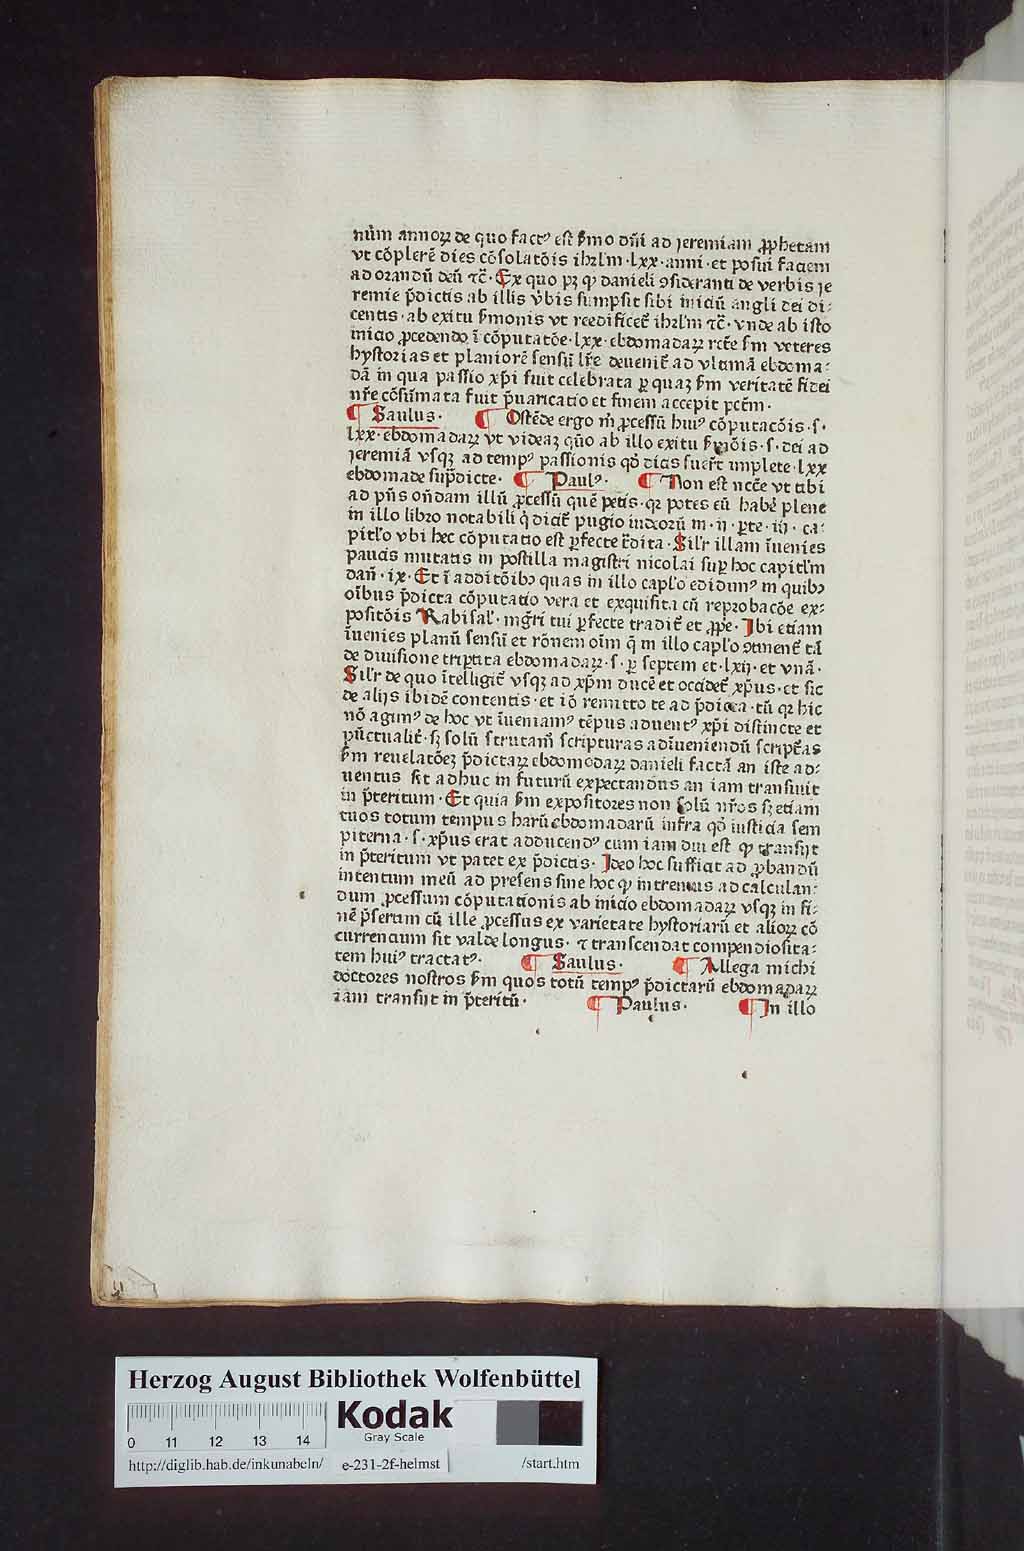 nũm annoꝝ de quo factꝰ est ẜmo dñi ad jeremiam ꝓphetam
vt cõplerẽ dies cõsolatõis ihrl'm · lxx · anni · et posui faciem
ad orandũ deũ ⁊c̃ · Ex quo pꝫ ꝙ danieli ꝯsideranti de verbis je
remie p̃dictis ab illis v̾bis sumpsit sibi iniciũ angli dei di-
centis · ab exitu ẜmonis vt reedificet̃ ihrl'm ⁊c̃ · vnde ab isto
inicio ꝓcedendo ĩ cõputatõe · lxx · ebdomadaꝝ rct̃e ẜm veteres
hystorias et planiorẽ sensũ lr̃e devenit̃ ad vltimã ebdoma-
dã in qua passio xp̃i fuit celebrata ꝑ quaꝫ ẜm veritatẽ fidei
nr̃e cõsũmata fuit p̃uaricatio et finem accepit pctm̃ ·
¶ Saulus · ¶ Ostẽde ergo m̃ ꝓcessũ huiꝰ cõputacõis · s ·
lxx · ebdomadaꝝ vt videaꝫ quõ ab illo exitu ẜmõis · s · dei ad
jeremiã vsqꝫ ad tempꝰ passionis qd̃ dicis fuer̃t implete · lxx
ebdomade sup̃dicte · ¶ Paulꝰ · ¶ Non est ncc̃e vt tibi
ad pñs oñdam illũ ꝓcessũ quẽ petis · qꝛ potes eũ habẽ plene
in illo libro notabili q̃ dicit̃ pugio iudeorũ in · ij · ꝑte · iij · ca-
pitl'o vbi hec cõputatio est ꝑfecte t̃dita · Sil'r illam ĩuenies
paucis mutatis in postilla magistri nicolai suꝑ hoc capitl'm
dañ · ix · Et ĩ additõibꝫ quas in illo capl'o edidimꝰ in quibꝫ
oĩbus p̃dicta cõputatio vera et exquisita cũ reprobacõe ex-
positõis Rabisal' · mg̃ri tui ꝑfecte tradit̃ et ꝓpe · Ibi etiam
ĩuenies planũ sensũ et rõnem oĩm q̃ in illo capl'o ꝯtinent̃ tã
de diuisione triꝑtita ebdomadaꝝ · s · ꝑ septem et · lxij · et vnã ·
Sil'r de quo ĩtelligit̃ vsqꝫ ad xp̃m ducẽ et occidet̃ xp̃us · et sic
de alijs ibidẽ contentis · et iõ remitto te ad p̃dicta · tũ qꝛ hic
nõ agimꝰ de hoc vt ĩueniamꝰ tẽpus aduentꝰ xp̃i distincte et
pũctualit̃ · sꝫ solũ scrutam̃ scripturas ad ĩueniendũ script̃as
ẜm reuelatõeꝫ p̃dictaꝝ ebdomodaꝝ danieli factã an iste ad-
uentus sit adhuc in futurũ expectandus an iam transiuit
in p̃teritum · Et quia ẜm expositores non solũ nr̃os sꝫ etiam
tuos totum tempus harũ ebdomadarũ infra qd̃ iusticia sem
piterna · s · xp̃us erat adducendꝰ cum iam diu est ꝙ transijt
in p̃teritum vt patet ex p̃dictis · Ideo hoc sufficiat ad ꝓbandũ
intentum meũ ad presens sine hoc ꝙ intremus ad calculan-
dum ꝓcessum cõputationis ab inicio ebdomadaꝝ vsqꝫ in fi-
nẽ p̃sertim cũ ille ꝓcessus ex varietate hystoriarũ et alioꝝ cõ
currencium sit valde longus · ⁊ transcendat compendiosita-
tem huiꝰ tractatꝰ · ¶ Saulus · ¶ Allega michi
doctores nostros ẜm quos totũ tempꝰ p̃dictarũ ebdomadaꝝ
iam transijt in p̃teritũ · ¶ Paulus · ¶ In illo
Herzog August Bibliothek Wolfenbüttel
Kodak
Gray Scale
0 11 12 13 14
http://diglib.hab.de/inkunabeln/ e-231-2f-helmst /start.htm